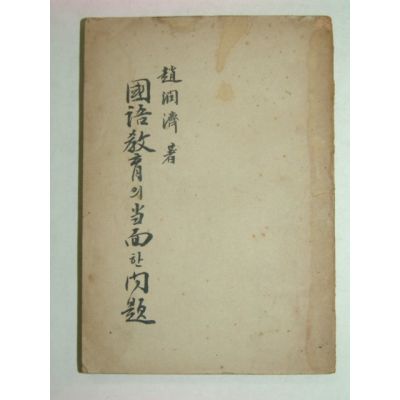 趙潤濟 著
國語教育의 当面한 問題